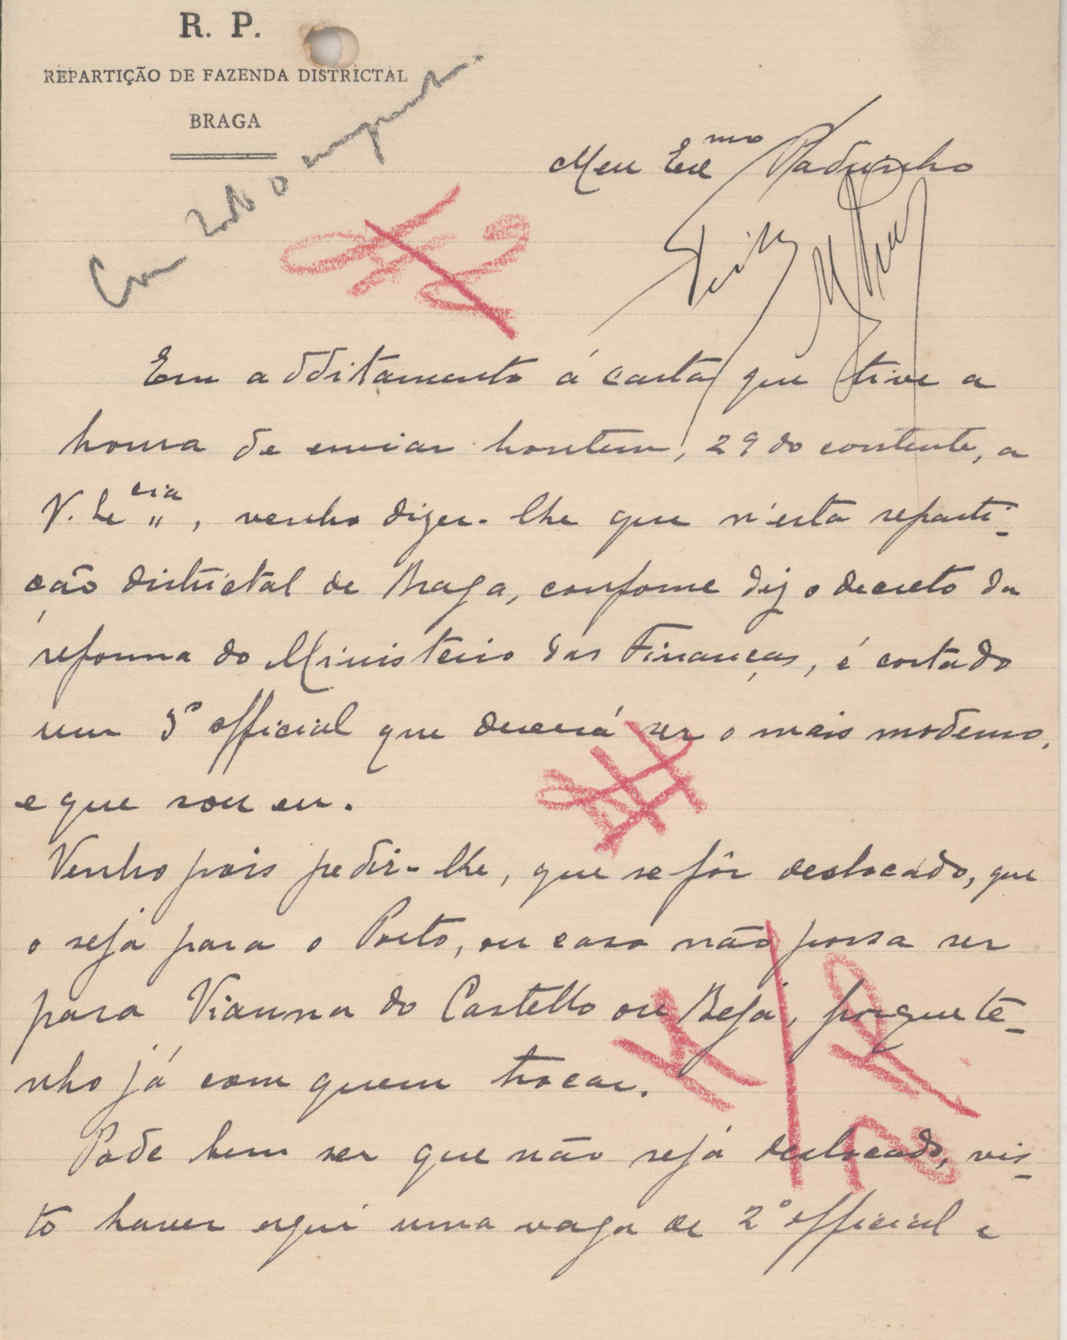 R. P.
REPARTIÇÃO DE FAZENDA DISTRICTAL
BRAGA
Meu Exmo Padrinho
Em additamento á carta que tive a
honra de enviar hontem, 29 do corrente, a
V. Excia, venho dizer-lhe que n'esta reparti-
ção districtal de Braga, conforme diz o decreto da
reforma do Ministerio das Finanças, é cortado
um 3º official que deverá ser o mais moderno,
e que sou eu.
Venho pois pedir-lhe, que se fôr deslocado, que
o seja para o Porto, ou caso não possa ser
para Vianna do Castello ou Beja, porque te-
nho já com quem trocar.
Póde bem ser que não seja deslocado, vis-
to haver aqui uma vaga de 2º official e